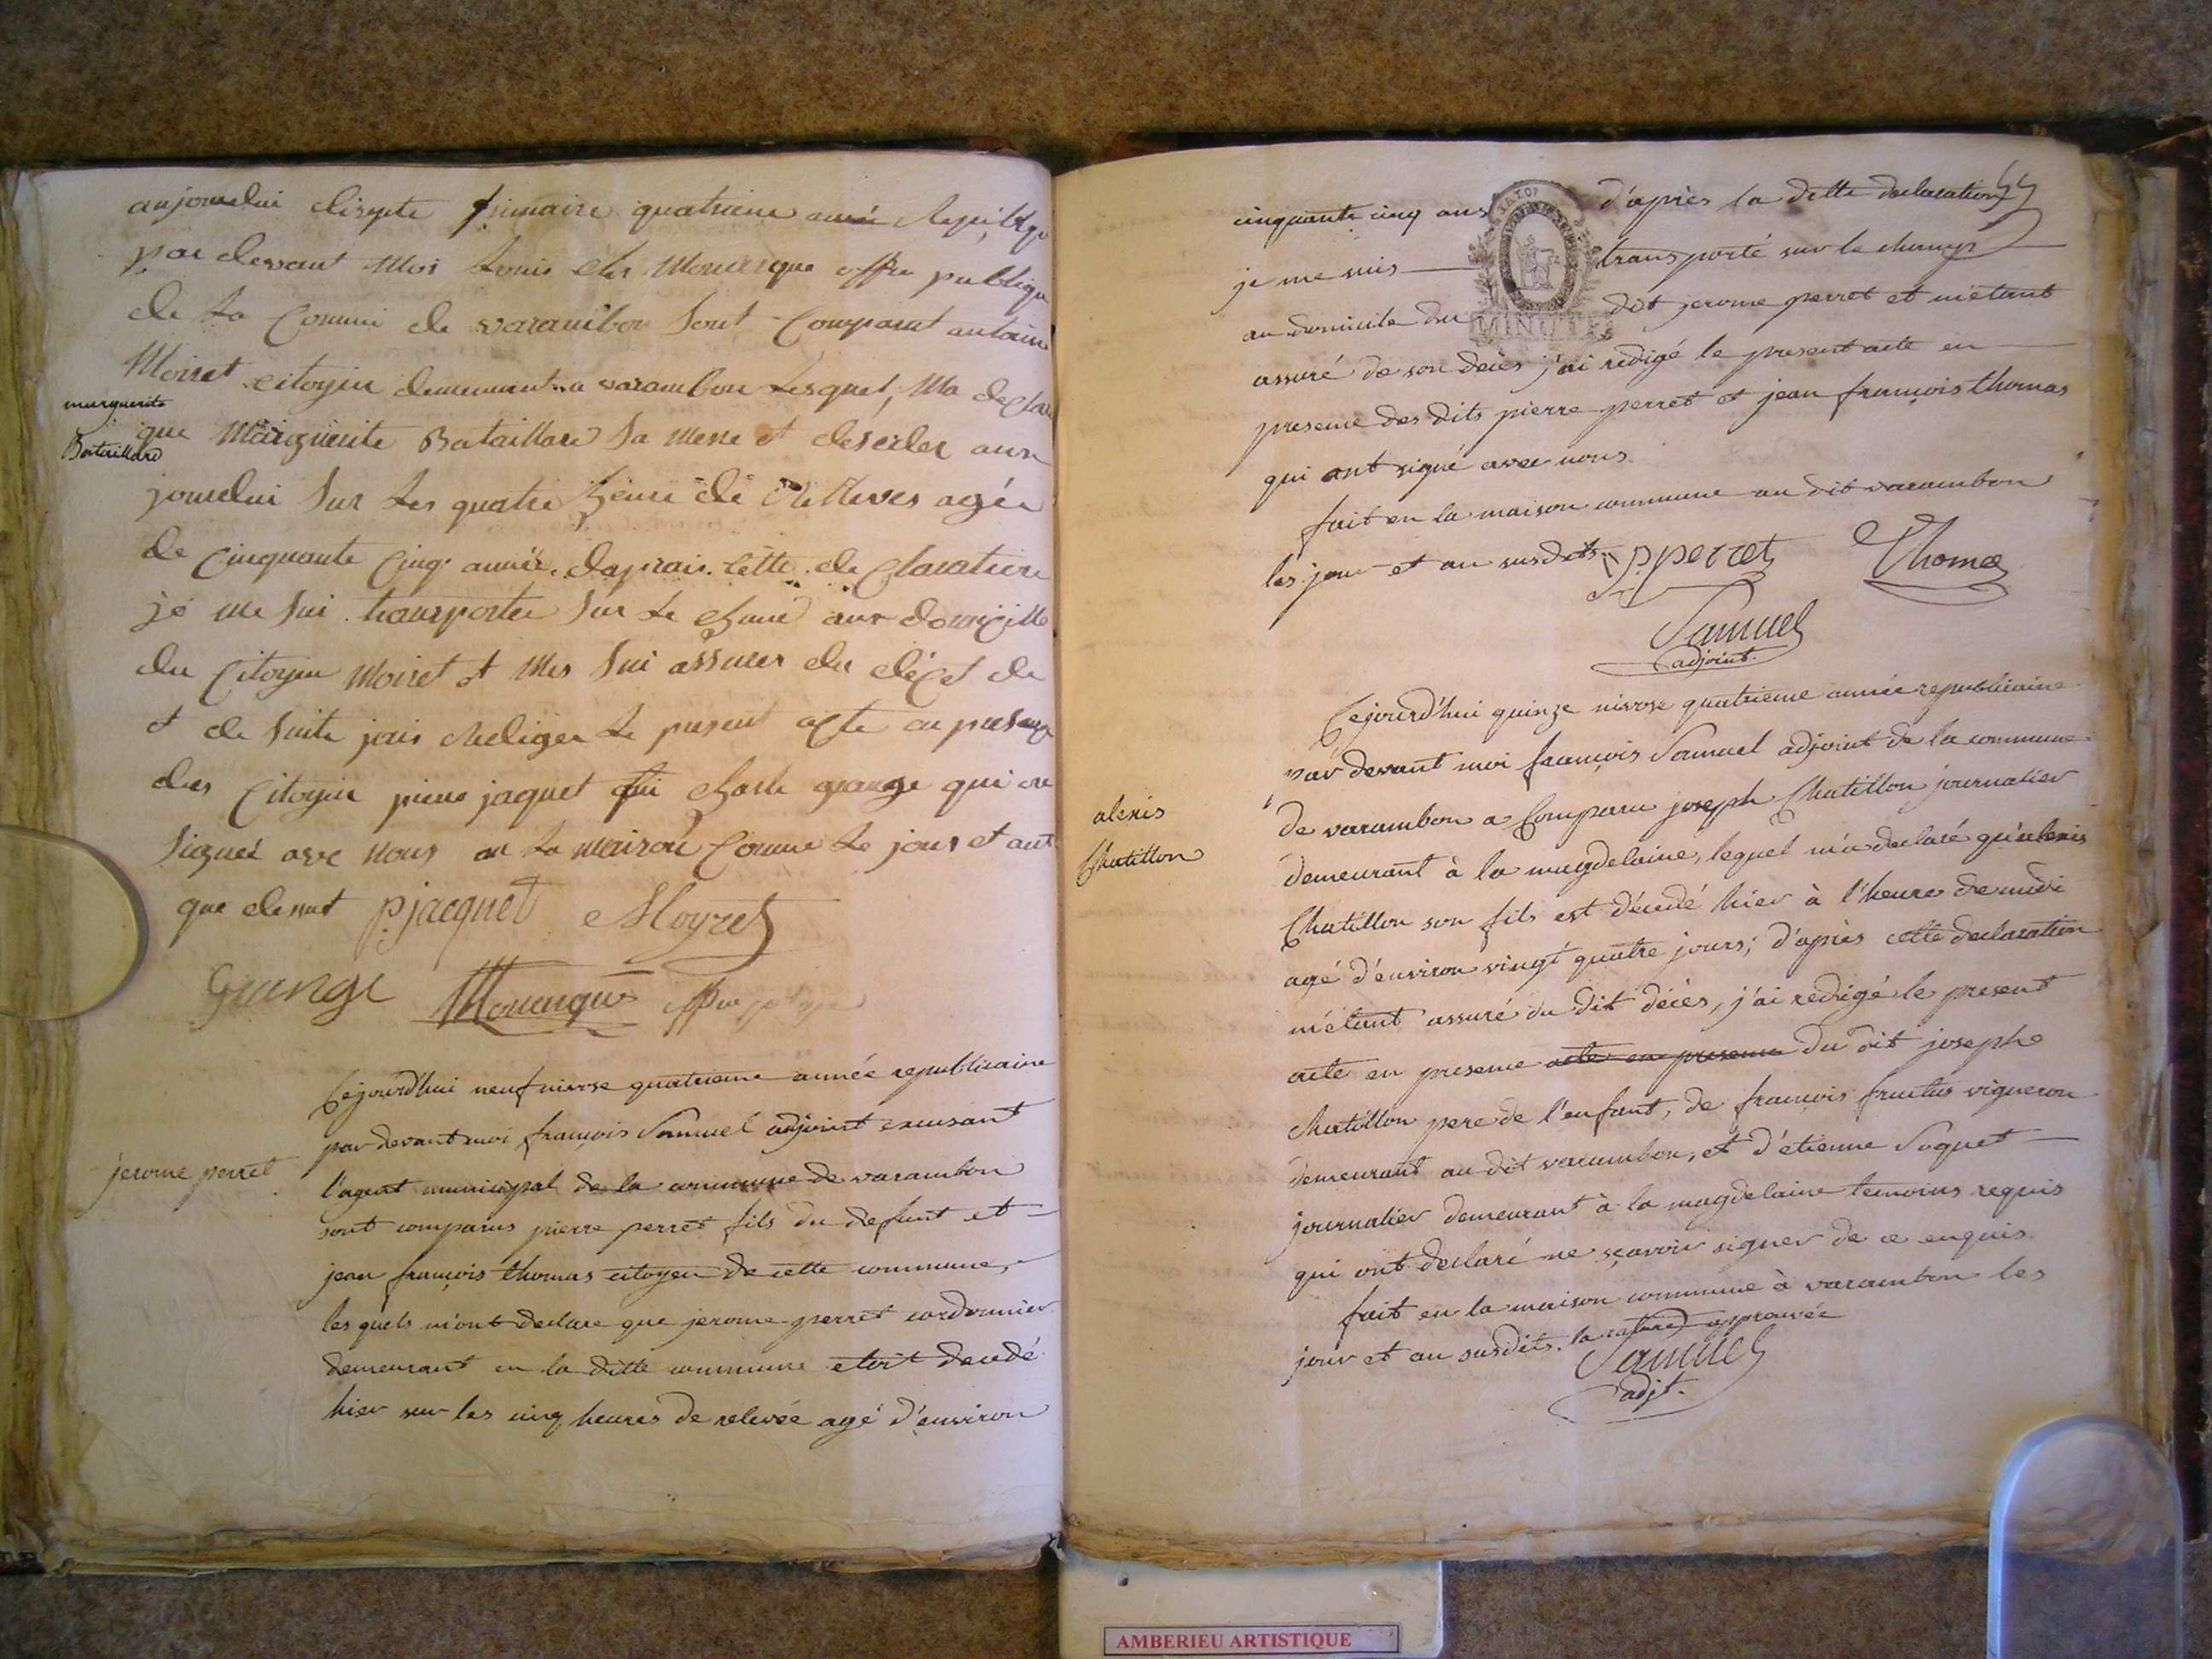 aujourdui disepte frimaire quatrieme année Repüblqe
par devant Moi Louis Mourerque offier publique
de La Commune de varambon Sont Comparut antoine
Moiret citoyien demeurant a varambon Lesquel, Ma declare
marguerite
Bataillard
que Marguerite Bataillard Sa Mere et deseder aux
jourdui Sur Les quatre heure de Relleves agée
de Cinquante Cinq année. daprais. cette de Claration
je me Sui transporter Sur Le Chamt aux domiçille
du Citoyien Moiret et Mes Sui assurer du deçet
et de Suite jais Rediger Le present açte en presençe
des Citoyien piere jaquet Charle grange qui on
Signéé avec Nous en La maison Comune Le jour et ant
que desut P. jacquet Moyret
Grange Mourerque offier
Cejourd'hui neuf nivose quatrieme année republicaine
par devant moi françois Samuel adjoint excusant
jerome perret
l'agent municipal de la commune de varambon
sont comparus pierre perret fils du defunt et
jean françois thomas citoyen de cette commune,
lesquels m'ont declare que jerome perret cordonnier
demeurant en la ditte commune etoit decedé
hier sur les cinq heures de relevée agé d'environ
cinquante cinq ans d'après la ditte declaration
je me suis transporté sur le champ
au domicile du dit jerome perret et m'etant
MINUTE
assuré de son decès j'ai redigé le present acte en
presence des dits pierre perret et jean françois thomas
qui ont signé avec nous.
fait en la maison commune au dit varambon
les jour et an susdits. P. perret Thomas
Samuel
adjoint.
Cejourd'hui quinze nivose quatrieme année republicaine
par devant moi françois Samuel adjoint de la commune
de varambon a Comparu joseph Chatillon journalier
alexis
Chatillon
demeurant à la magdelaine, lequel m'a declaré qu'alexis
Chatillon son fils est décedé hier à l'heure de midi
agé d'environ vingt quatre jours; d'après cette declaration
m'étant assuré du dit décès, j'ai redigé le present
acte en presence acte en presence du dit josephe
Chatillon pere de l'enfant, de françois fructus vigneron
demeurant au dit varambon, et d'étienne Soquet
journalier demeurant à la magdelaine temoins requis
qui ont declaré ne sçavoir signer de ce enquis.
fait en la maison commune à varambon les
jour et an susdits. la rature approuvée
Samuel
adjt.
AMBERIEU ARTISTIQUE